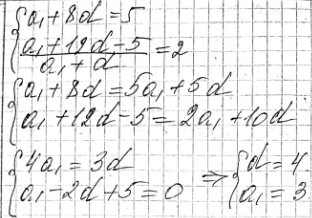 a₁+8d=5
(a₁+12d-5)/(a₁+d)=2
a₁+8d=5a₁+5d
a₁+12d-5=2a₁+10d
4a₁=3d
a₁-2d+5=0 ⇒ d=4
a₁=3